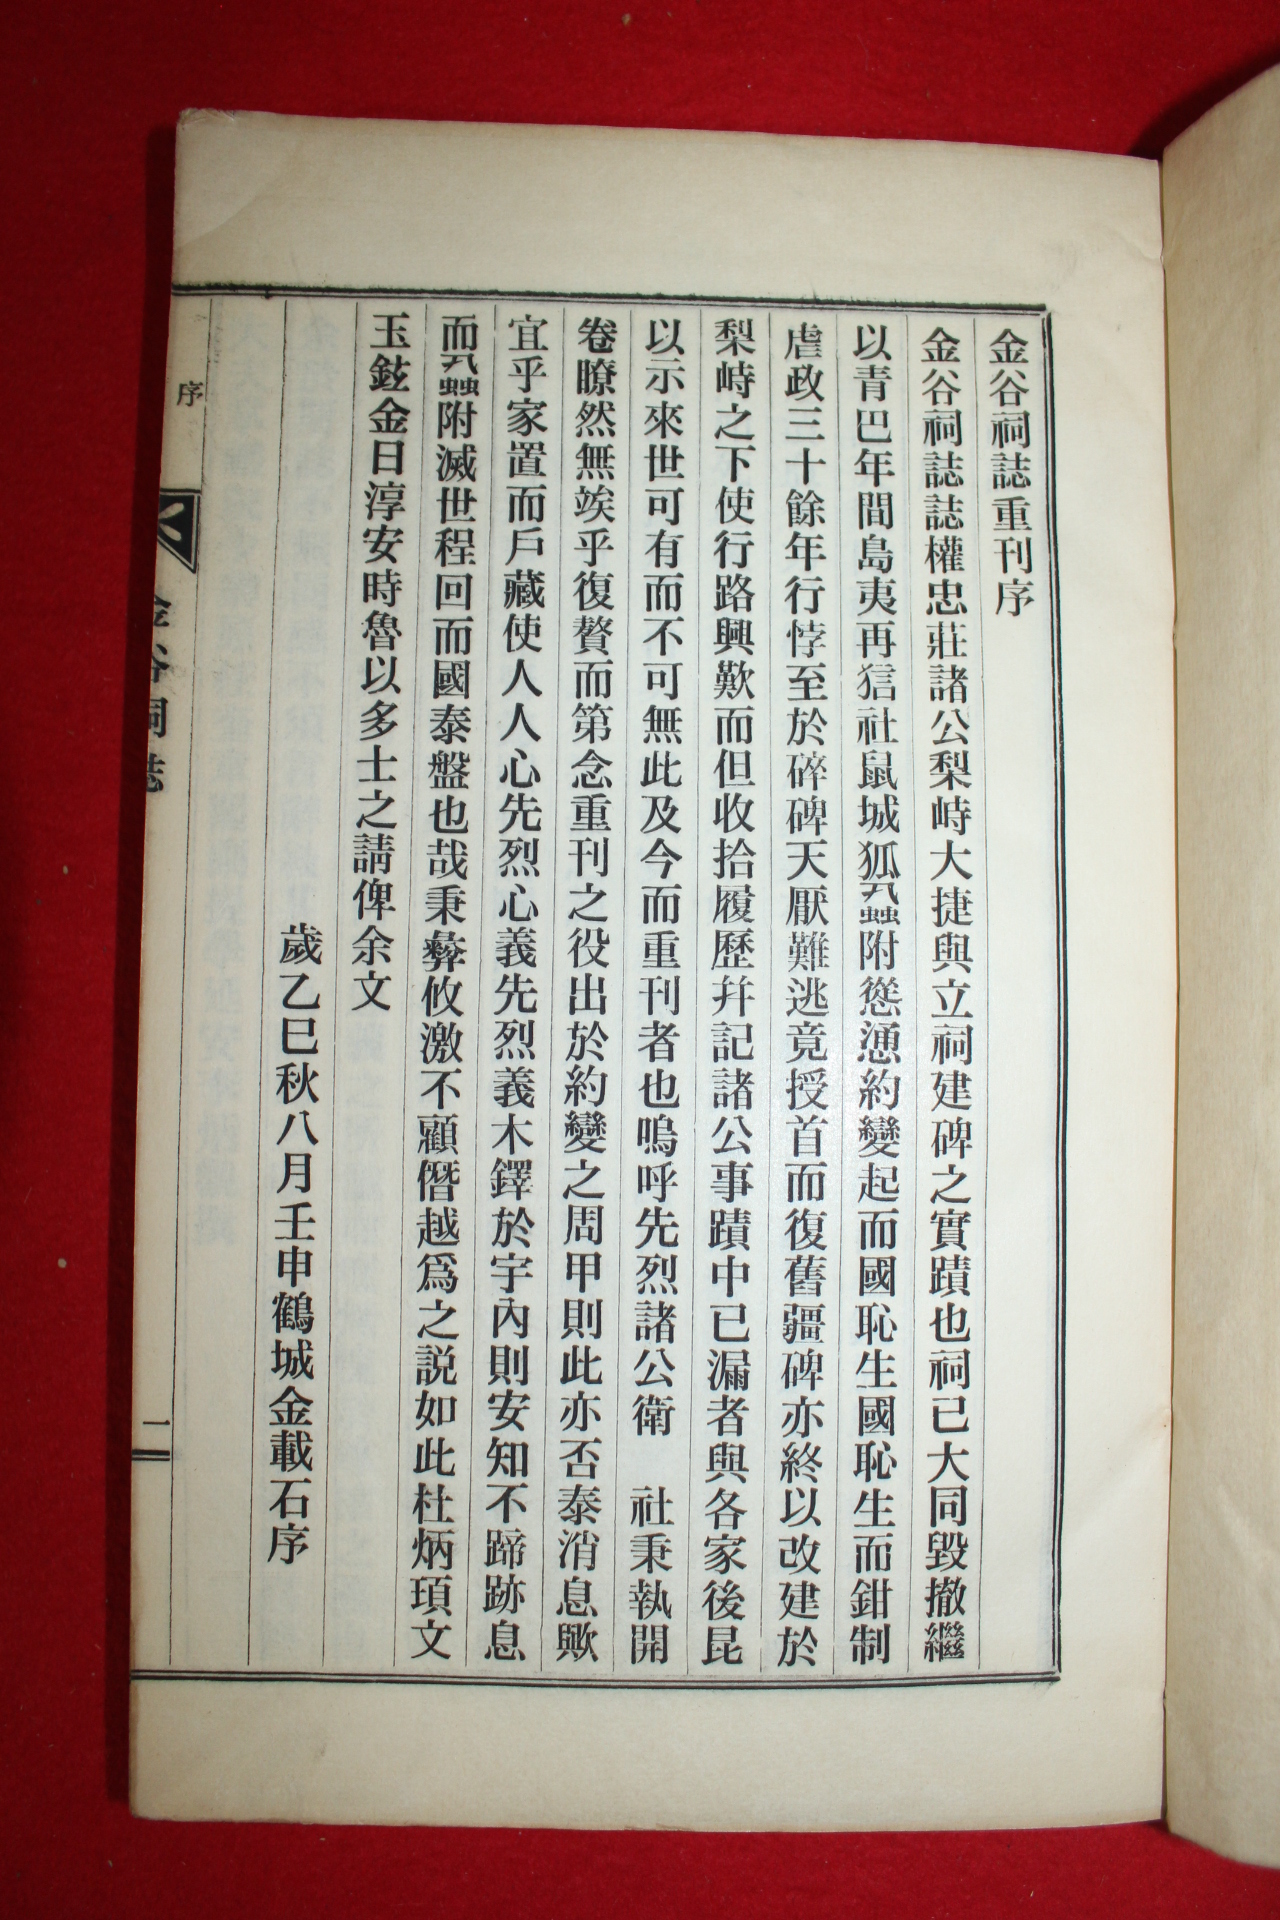 金谷祠誌重刊序
金谷祠誌誌權忠莊諸公梨峙大捷與立祠建碑之實蹟也祠已大同毀撤繼
以青巴年間島夷再狺社鼠城狐蝨附慫慂約變起而國恥生國恥生而鉗制
虐政三十餘年行悖至於碎碑天厭難逃竟授首而復舊疆碑亦終以改建於
梨峙之下使行路興歎而但收拾履歷幷記諸公事蹟中已漏者與各家後昆
以示來世可有而不可無此及今而重刊者也嗚呼先烈諸公衛　社秉執開
卷瞭然無竢乎復贅而第念重刊之役出於約變之周甲則此亦否泰消息歟
宜乎家置而戶藏使人人心先烈心義先烈義木鐸於宇內則安知不蹄跡息
而蝨附滅世程回而國泰盤也哉秉彝攸激不顧僭越爲之説如此杜炳頊文
玉鉉金日淳安時魯以多士之請俾余文
歲乙巳秋八月壬申鶴城金載石序
序
金谷祠誌
一